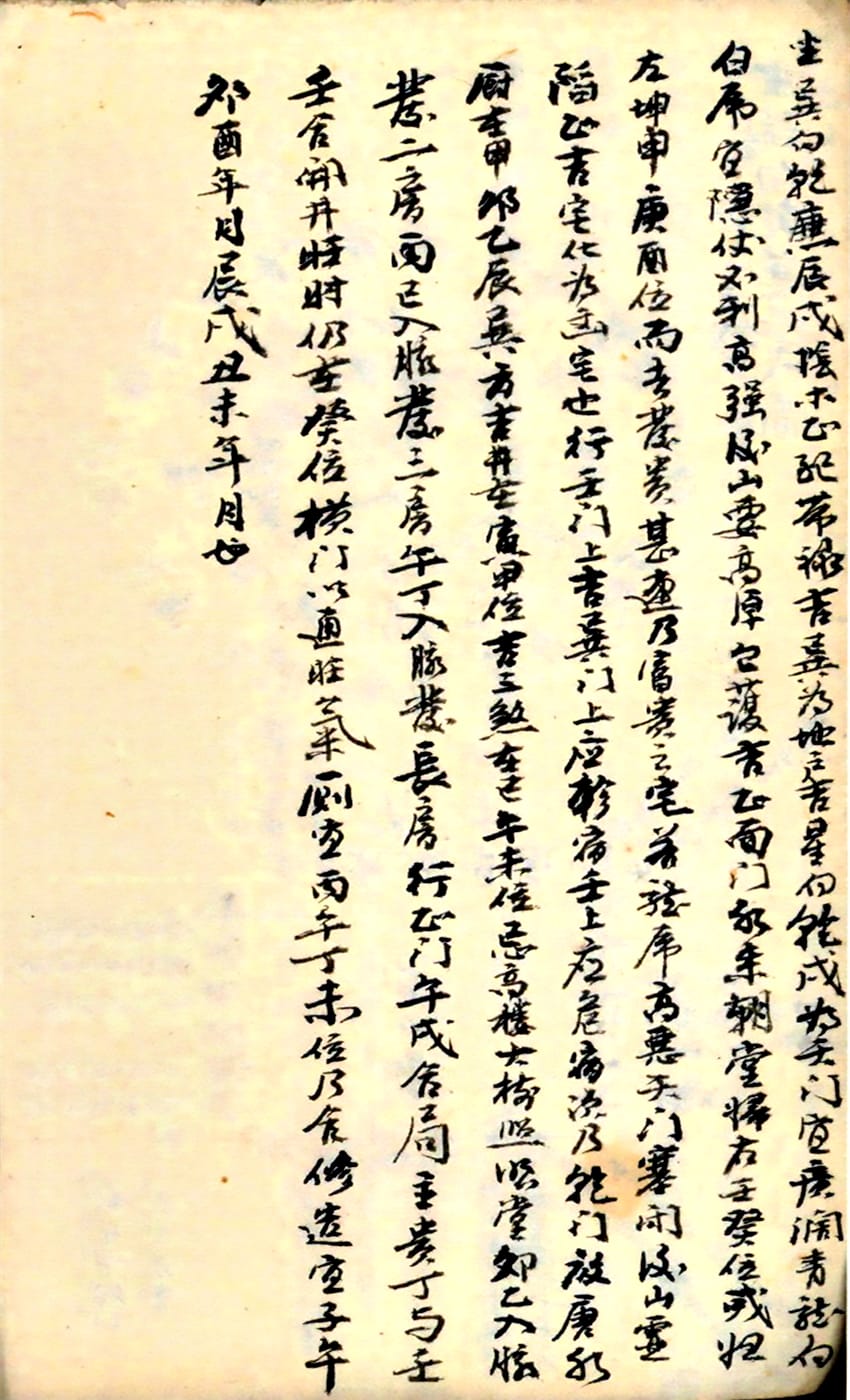 坐巽向乾兼辰戌陰木正配带禄吉巽为地户吉星向乾戌为天门宜廣濶青龍白
白虎宜隱伏不利高强後山要高厚包護吉正面门水来朝堂归右壬癸位或归
左坤申庚酉位而去發贵甚速乃富贵之宅若龍虎高悪天门塞闭後山空
陷正吉宅化为凶宅也行壬门上吉巽门上应軫宿壬上应危宿次乃乾门放唐水
厨在甲卯乙辰巽方吉井在寅甲位吉三煞在巳午未位忌高楼大树照临堂卯乙入脉
發二房丙巳入脉發三房午丁入脉發長房行正门午戌合局主贵丁与壬
壬合開井旺财仍在癸位横门以通旺氣厠宜丙午丁未位乃合修造宜子午
卯酉年月辰戌丑未年月也